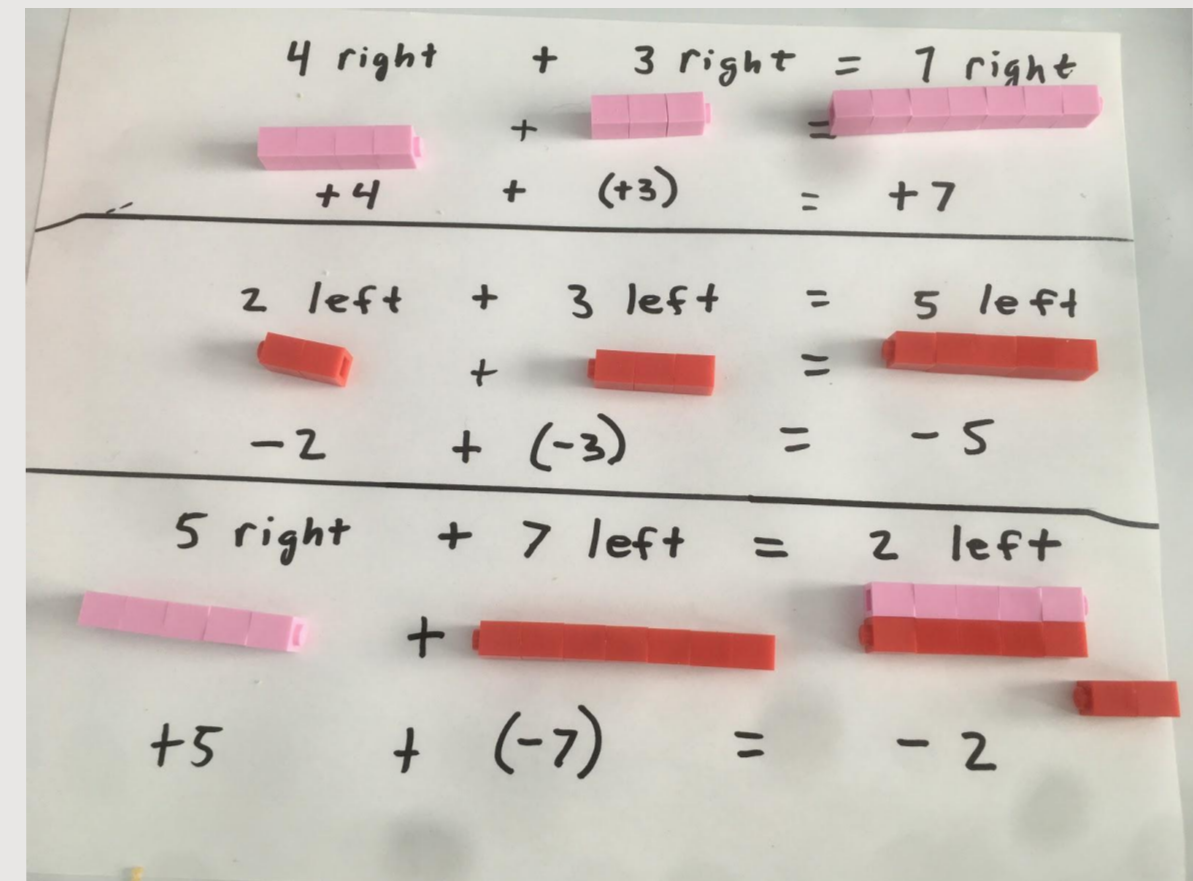 4 right + 3 right = 7 right
+ =
+4 + (+3) = +7
2 left + 3 left = 5 left
+ =
-2 + (-3) = -5
5 right + 7 left = 2 left
+
+5 + (-7) = -2